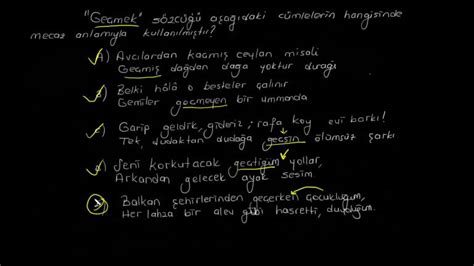 "Geçmek" sözcüğü aşağıdaki cümlelerin hangisinde
mecaz anlamıyla kullanılmıştır?
A) Avcılardan kaçmış ceylan misali
Geçmiş dağdan dağa yoktur durağı
B) Belki hâlâ o besteler çalınır
Gemiler geçmeyen bir ummanda
C) Garip geldik, gideriz; rafa koy evi barkı!
Tek, dudaktan dudağa geçsin ölümsüz şarkı
D) Seni korkutacak geçtiğim yollar,
Arkandan gelecek ayak sesim.
Balkan şehirlerinden geçerken çocukluğum,
Her lahza bir alev gibi hasretti, duyduğum.